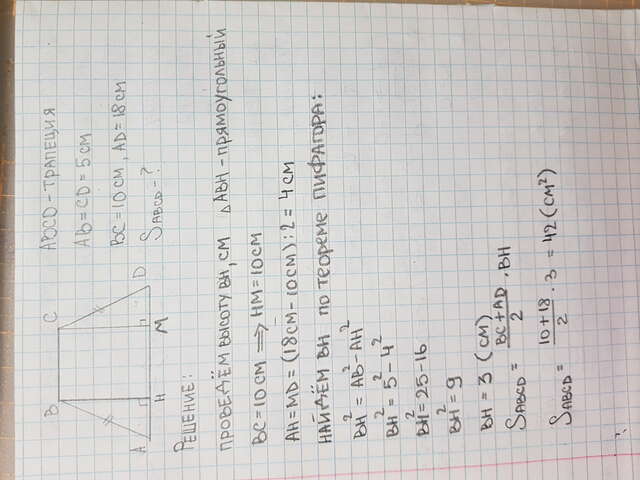 B C ABCD - ТРАПЕЦИЯ
AB = CD = 5 СМ
BC = 10 СМ, AD = 18 СМ
A D
H M
SABCD - ?
РЕШЕНИЕ:
ПРОВЕДЁМ ВЫСОТУ BH, CM △ABH - ПРЯМОУГОЛЬНЫЙ
BC = 10 СМ ⟹ HM = 10 СМ
AH = MD = (18 СМ - 10 СМ) : 2 = 4 СМ
НАЙДЁМ BH ПО ТЕОРЕМЕ ПИФАГОРА:
BH² = AB² - AH²
BH² = 5² - 4²
BH² = 25 - 16
BH² = 9
BH = 3 (СМ)
SABCD = (BC + AD)/2 · BH
SABCD = (10 + 18)/2 · 3 = 42 (СМ²)